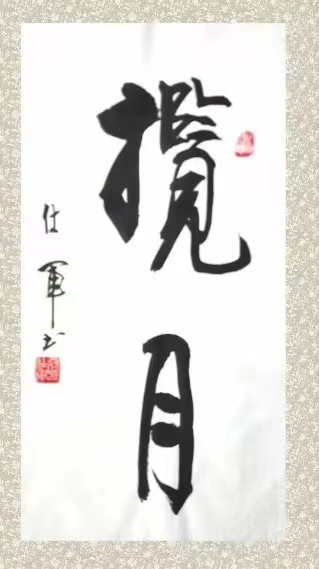 攬月
仕軍书